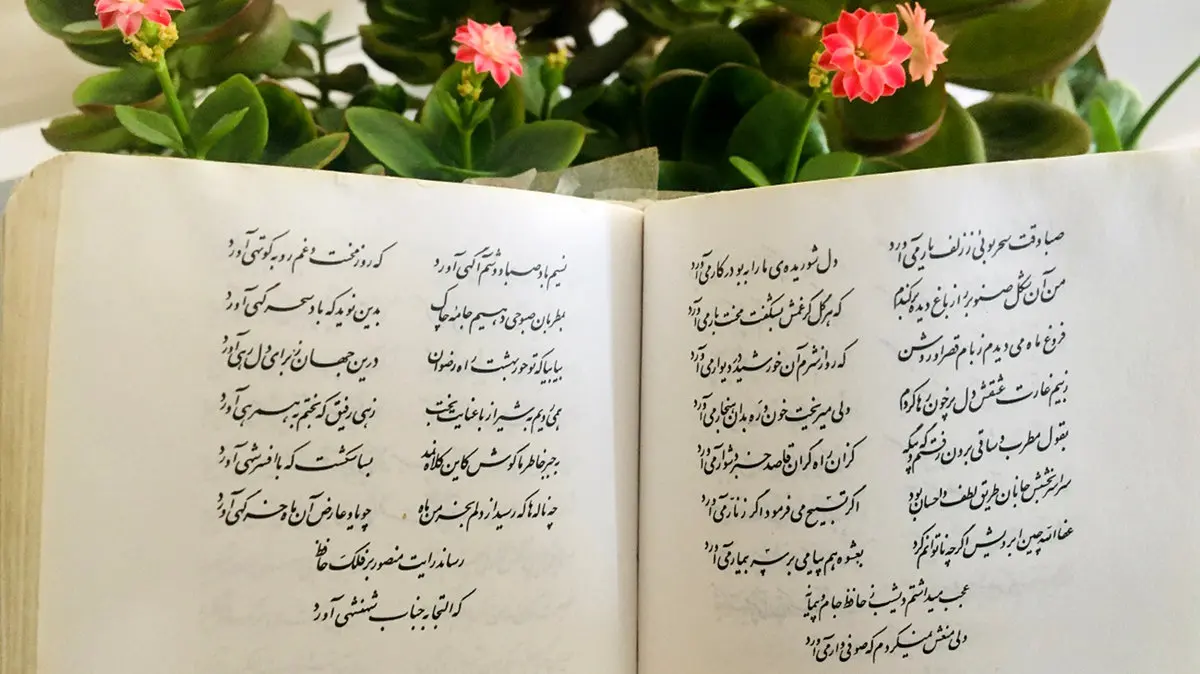 صبا وقت سحر بوئی ز زلف یار می آورد دل شوریده‌ی ما را به بو در کار می آورد
من آن شکل صنوبر را ز باغ دیده برکندم که هر گل کز غمش بشکفت محنت بار می آورد
فروغ ماه می دیدم ز بام قصر او روشن که رو از شرم آن خورشید در دیوار می آورد
ز بیم غارت عشقش دل پر خون رها کردم ولی میریخت خون و ره بدان هنجار می آورد
بقول مطرب و ساقی برون رفتم گه و بیگه کزان راه گران قاصد خبر دشوار می آورد
سراسر بخشش جانان طریق لطف و احسان بود اگر تسبیح می فرمود اگر زنّار می آورد
عفا الله چین ابرویش اگر چه ناتوانم کرد بعشوه هم پیامی بر سر بیمار می آورد
عجب میداشتم دیشب ز حافظ جام و پیمانه
ولی منعش نمیکردم که صوفی وار می آورد
نسیم باد صبا دوشم آگهی آورد که روز محنت و غم رو به کوتهی آورد
بمطربان صبوحی دهیم جامه چاک بدین نوید که باد سحرگهی آورد
بیا بیا که تو حور بهشت را رضوان درین جهان ز برای دل رهی آورد
همی رویم بشیراز با عنایت بخت زهی رفیق که بختم به همرهی آورد
به جبر خاطر ما کوش کاین کلاه نمد بسا شکست که با افسر شهی آورد
چه ناله ها که رسید از دلم بخرمن ماه چو یاد عارض آن ماه خرگهی آورد
رساند رایت منصور بر فلک حافظ
که التجا به جناب شهنشهی آورد